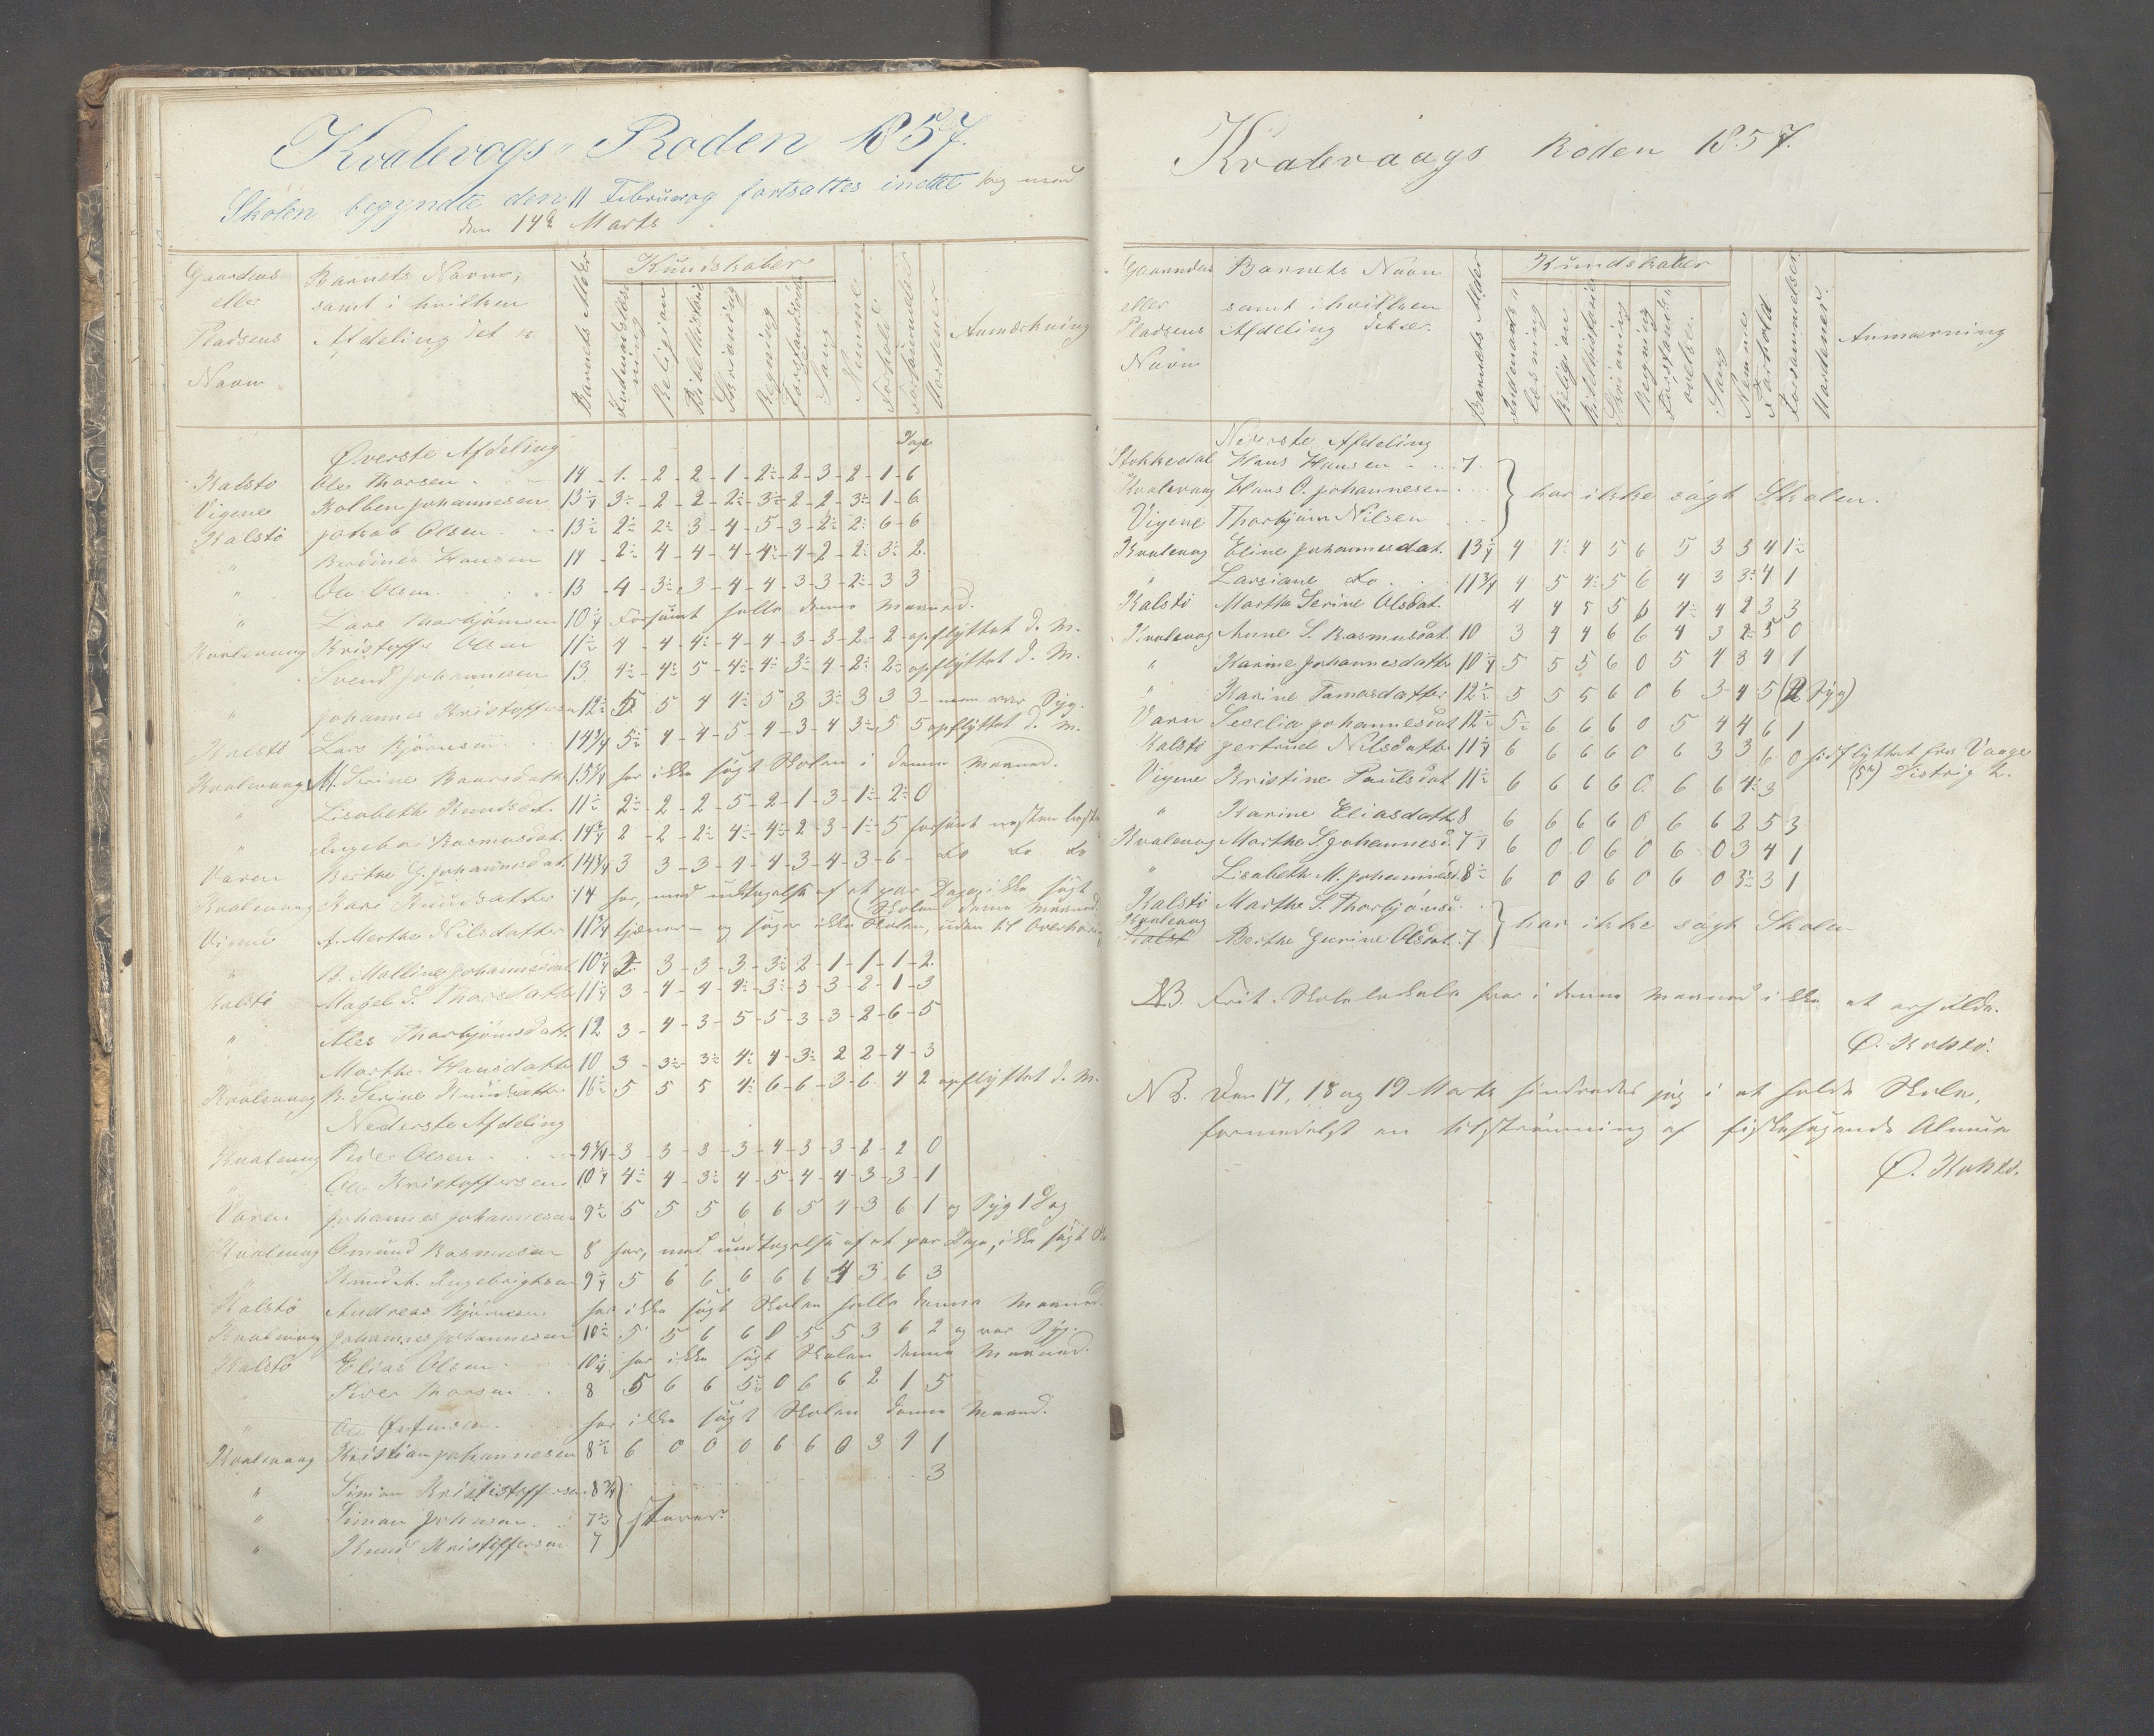 Kvalevogs- Roden 1857.
Skolen begyndte den 11 Februar og fortsattes indtil og med
den 14de Marts
Gaardens
eller
Pladsens
Navn
Barnets Navn,
samt i hvilken
Afdeling det er
Barnets Alder
Kundskaber
Indenadslæsning
Religion
Bibelhistorie
Skrivning
Regning
Forstandsøvelse
Sang
Nemme
Forhold
Forsømmelser
Anmærkning
Øverste Afdeling Dage
Kalstø Ole Thorsen 14 1 2 2 1 2÷ 2 3 2 1 6
Vigene Kolben Johannesen 13¼ 3÷ 2 2 2÷ 3÷ 2 2 3÷ 1 6
Kalstø Jakob Olsen 13½ 2÷ 2÷ 3 4 5 3 2÷ 2÷ 6 6
" Berdines Hansen 14 2÷ 4 4 4 4÷ 4 2 2÷ 3÷ 2
" Ole Olsen 13 4 3÷ 3 4 4 3 3 2÷ 3 3
" Lars Thorbjörnsen 10¼ Forsømt hele denne Maaned.
Kvalevaag Kristoffer Olsen 11½ 4 4 4÷ 4 4 3 3 2 2 opflyttet d. M.
" Svend Johannesen 13 4÷ 4÷ 5 4÷ 4÷ 3÷ 4 2÷ 2÷ opflyttet d. M.
" Johannes Kristoffersen 12½ 5 5 4 4÷ 5 3 3÷ 3 3 3 men var Syg.
Kalstö Lars Bjørnsen 14¾ 5÷ 4 4 5 4 3 4 3÷ 5 5 opflyttet d. M.
Kvalevaag M. Serine Baarsdatter 15¾ har ikke søgt Skolen i denne Maaned.
" Lisabeth Knudsdt. 11½ 2÷ 2 2 5 2 1 3 1÷ 2÷ 0
" Ingebor Rasmusdat. 14¾ 2 2 2÷ 4÷ 4÷ 2 3 1÷ 5 forsømt næsten hele
Varen Berthe G. Johannesdat. 14¾ 3 3 3 4 4 3 4 3 6 do do do
Kvalevaag Kari Knudsdatter 14 har, med undtagelse af et par Dage, ikke søgt
Skolen denne Maaned.
Vigene A. Merthe Nilsdatter 11¾ tjener og søger ikke Skolen, uden til Overhøring
" A. Malline Johannesdat. 10¼ 2 3 3 3 3÷ 2 1 1 1 2
Kalstö Magel S. Thorsdatter 11¼ 3 4 4 4÷ 3÷ 3 3 2 1 3
" Ales Thorbjörnsdatt. 12 3 4 3 5 5 3 3 2 6 5
" Marthe Hansdatter 10 3 3÷ 3÷ 4÷ 4 3÷ 2 2 4 3
Kvalevaag B. Serine Knudsdatter 16½ 5 5 5 4÷ 6 6 3 6 4 2 opflyttet d. M.
Nederste Afdeling
Kvalevaag Peder Olsen 9¾ 3 3 3 3 4 3 3 2 2 0
" Ole Kristoffersen 10¼ 4÷ 4 3÷ 4 5 4 4 3 3 1
Varen Johannes Johannesen 9½ 5 5 5 6 6 5 4 3 6 1 og Syg 1 Dag
Kvalevaag Omund Rasmusen 8 har, med undtagelse af et par Dage, ikke søgt
" Knud A. Ingebrigtsen 9¼ 5 6 6 6 6 6 4 3 6 3
Kalstö Andreas Bjørnsen har ikke søgt Skolen hele denne Maaned.
Kvalevaag Johannes Johannesen 10½ 5 5 6 6 0 5 5 3 6 2 og var Syg.
Kalstö Elias Olsen 10¼ har ikke søgt Skolen denne Maaned.
" Iver Thorsen 8 5 6 6 5÷ 0 6 6 2 1 5
" Ole har ikke søgt Skolen denne Maaned.
Kvalevaag Kristian Johannesen 8½ 6 0 0 0 6 6 0 3 4 1
" Simon Krististoffersen 8¾ 3
" Simon Johnsen 7½
" Knud Kristoffersen 7
Kvalevaags Roden 1857.
Gaarendes
eller
Pladsens
Navn
Barnets Navn
samt i hvilken
Afdeling det er.
Barnets Alder
Kundskaber
Indenadslæsning
Religion
Bibelhistorie
Skrivning
Regning
Forstandsøvelse.
Sang
Nemme
Forhold
Forsømmelser
Anmærning
Nederste Afdeling
Stokkedal Hans Hansen 7
Kvalevaag Hans O. Johannesen har ikke søgt Skolen.
Vigene Thorbjörn Nilsen
Kvalevag Eline Johannesdat. 13¼ 4 4÷ 4 5 6 5 3 3 4 1÷
" Larsiane do 11¾ 4 5 4÷ 5 6 4 3 3÷ 4 1
Kalstö Marthe Serine Olsdat. 4 4 5 5 6 4÷ 4 2 3 3
Kvalevag Anne S. Rasmusdat. 10 3 4 4 6 6 4 3 2÷ 5 0
" Karine Johannesdatter 10¼ 5 5 5 6 0 5 4 3 4 1
" Karine Tamasdatter 12½ 5 5 5 6 0 6 3 4 5 (2 Syg)
Varn Secelia Johannesdat 12½ 5÷ 6 6 6 0 5 4 4 6 1
Kalstö Gertrud Nilsdatter 11¼ 6 6 6 6 0 6 3 3 6 0 hidflyttet fra Vaage
Vigene Kristine Paulsdat 11½ 6 6 6 6 0 6 6 4÷ 3 Distrig
" Karine Eliasdatter 8 6 6 6 6 0 6 6 2 5 3
Kvalevag Marthe S. Johannesd. 7¼ 6 0 0 6 0 6 0 3 4 1
" Lisabeth M. Johannesd. 8½ 6 0 0 6 0 6 0 3÷ 3 1
Kalstö Marthe S. Thorbjörnsd.
Kvalevag har ikke søgt Skolen
Kalst Berthe Gurine Olsdat. 7
NB. Frit Skolelokale har i denne Maaned ikke
Ø. Kalstö.
NB. Den 17, 18 og 19 Marts hindredes jeg i at holde Skole,
formedelst en tilstrømning af fiskesøgende Almue
Ø. Kalstö.